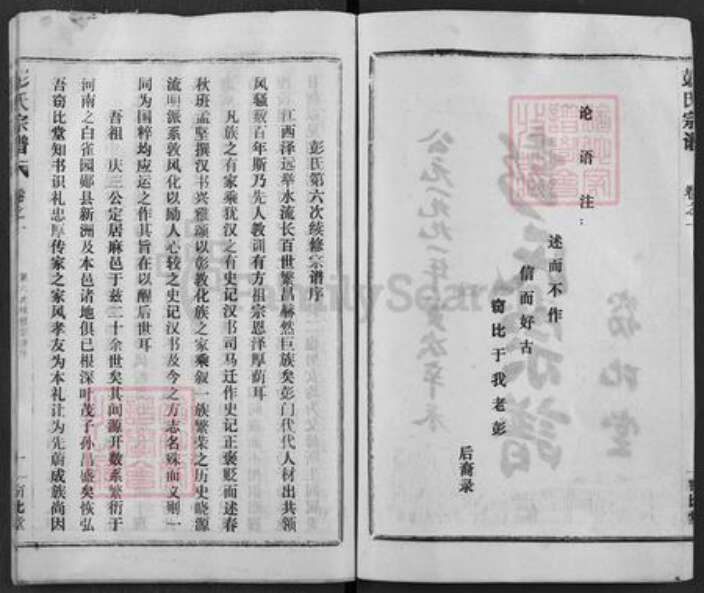 彭氏宗谱 卷之一
论语注：
述而不作
信而好古
窃比于我老彭
后裔录
窃比堂
彭氏第六次续修宗谱序
江西泽远举水流长百世繁昌赫然巨族矣彭门代代人材出共领
风骚数百年斯乃先人教训有方祖宗恩泽厚荫耳
凡族之有家乘犹汉之有史记汉书司马迁作史记正褒贬而述春
秋班孟坚撰汉书兴雅颂以彰教化族之家乘叙一族繁荣之历史晓源
流明派系敦风化以励人心较之史记汉书及今之方志名殊而义则一
同为国粹均应运之作其旨在以醒后世耳
吾祖 庆三公定居麻邑于兹二十余世矣其间源开数系繁衍于
河南之白雀园郧县新洲及本邑诸地俱已根深叶茂子孙昌盛矣恢弘
吾窃比堂知书识礼忠厚传家之家风孝友为本礼让为先蔚成族尚因
彭氏宗谱 卷之一
一
窃比堂
FamilySearch